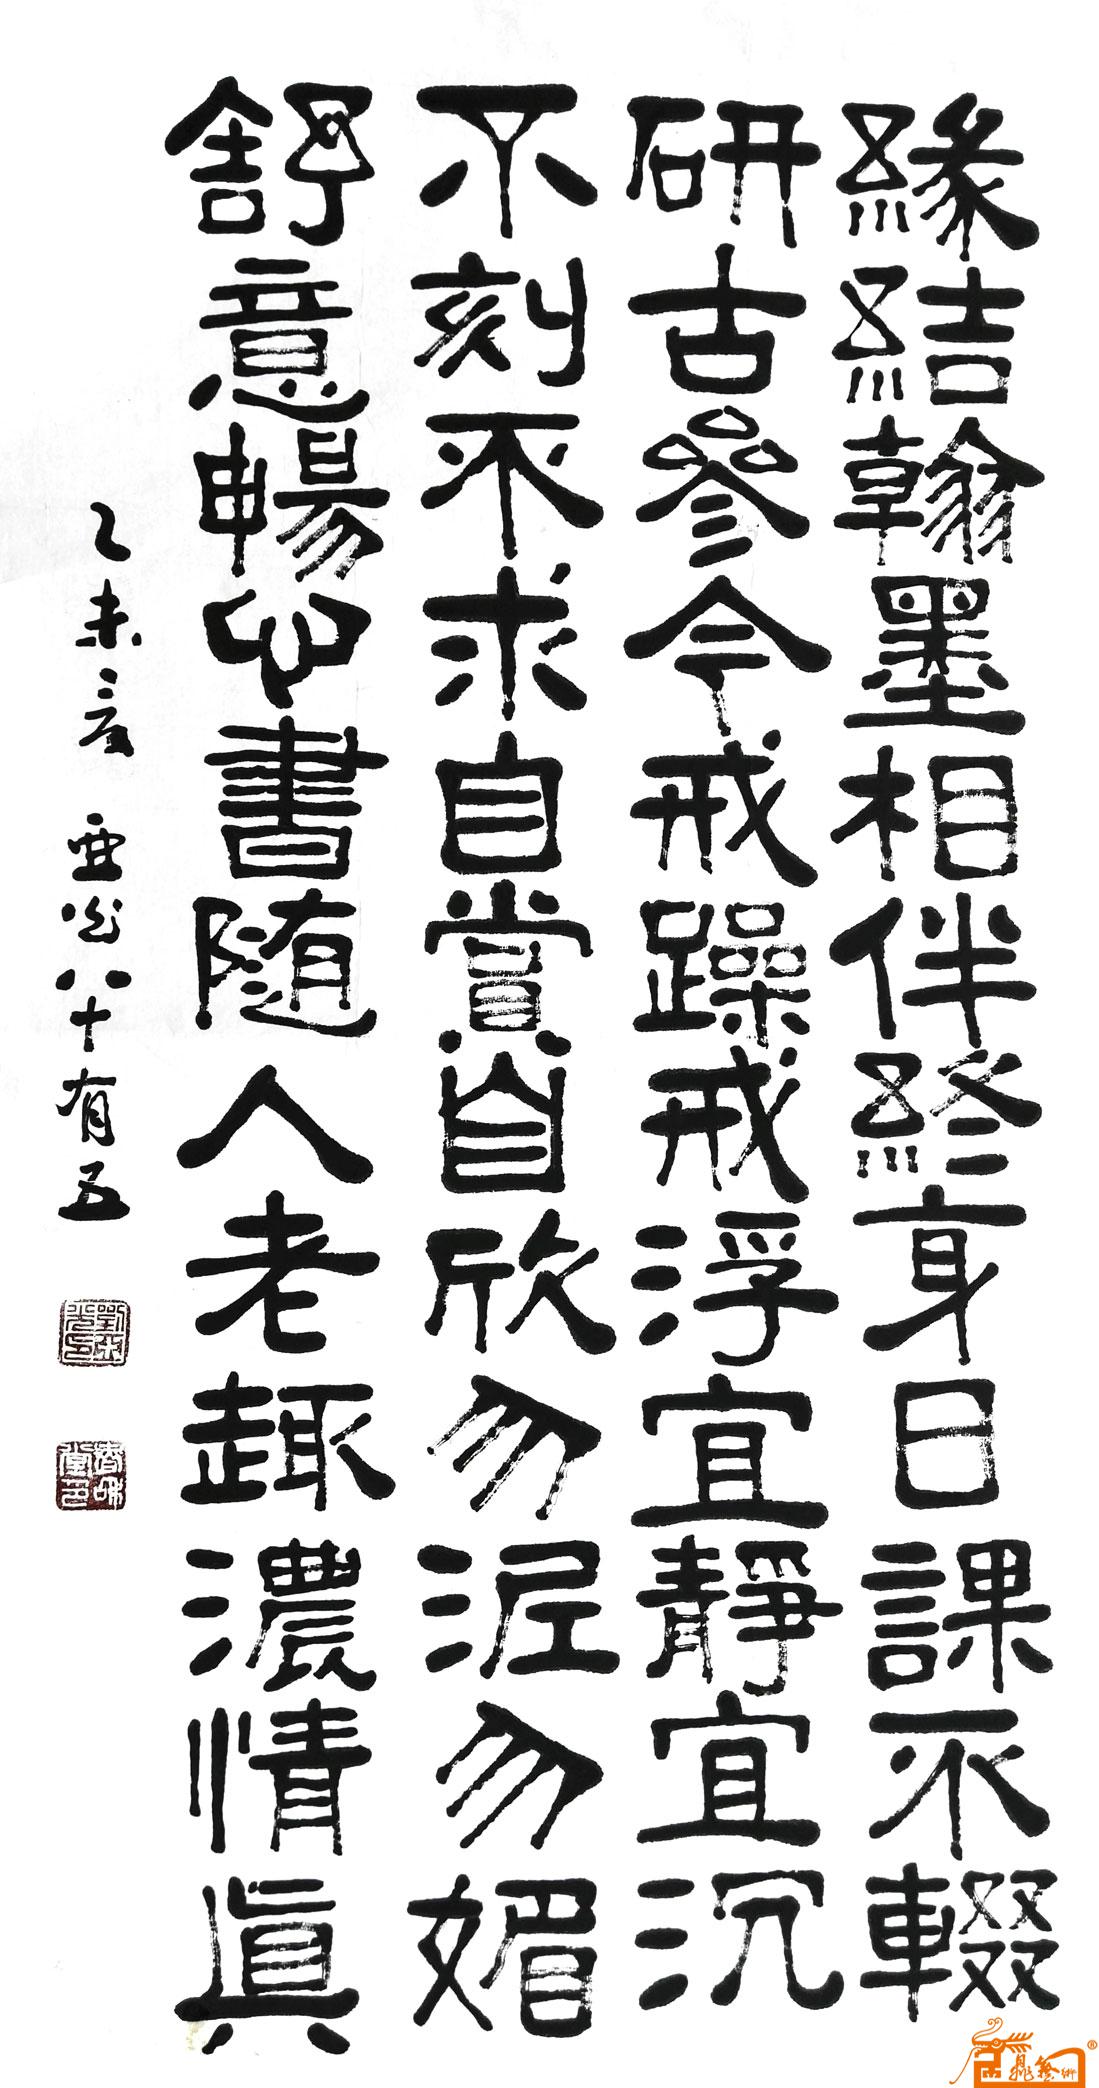 緣結翰墨相伴終身日課不輟
研古參今戒躁戒浮宜靜宜沉
不刻不求自賞自欣勿泥勿媚
舒意暢心書随人老趣濃情眞
乙未 八十有五